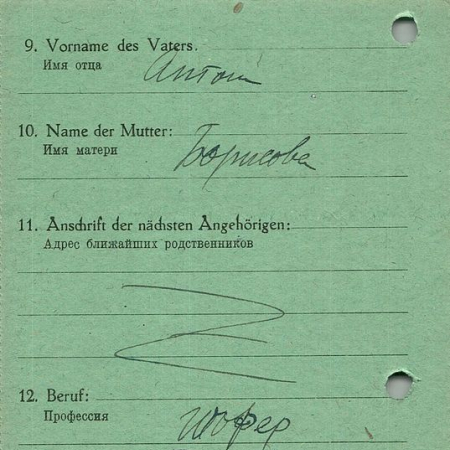 9. Vorname des Vaters.
Имя отца
Антон
10. Name der Mutter:
Имя матери
Борисова
11. Anschrift der nächsten Angehörigen:
Адрес ближайших родственников
12. Beruf:
Профессия
шофер